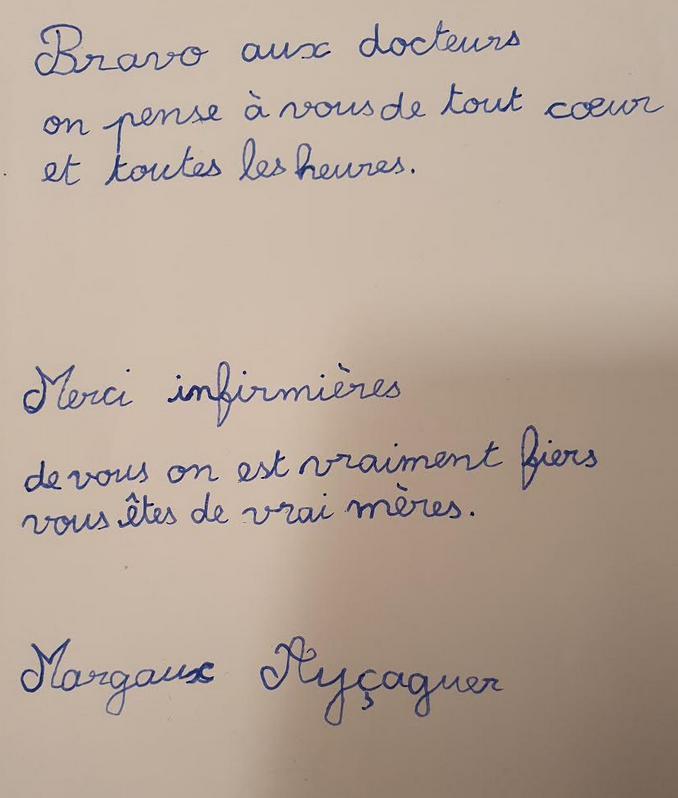 Bravo aux docteurs
on pense à vous de tout cœur
et toutes les heures.
Merci infirmières
de vous on est vraiment fiers
vous êtes de vrai mères.
Margaux Ayçaguer